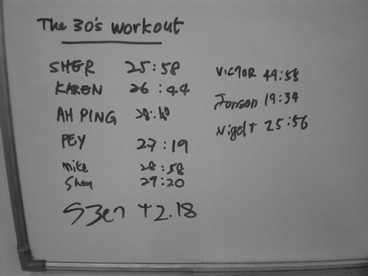 The 30's workout
SHER 25:58
KAREN 26:44
AH PING 28:18
PEY 27:19
mike 28:58
Shan 27:20
VICTOR 49:58
Jonson 19:34
Nigel T 25:56